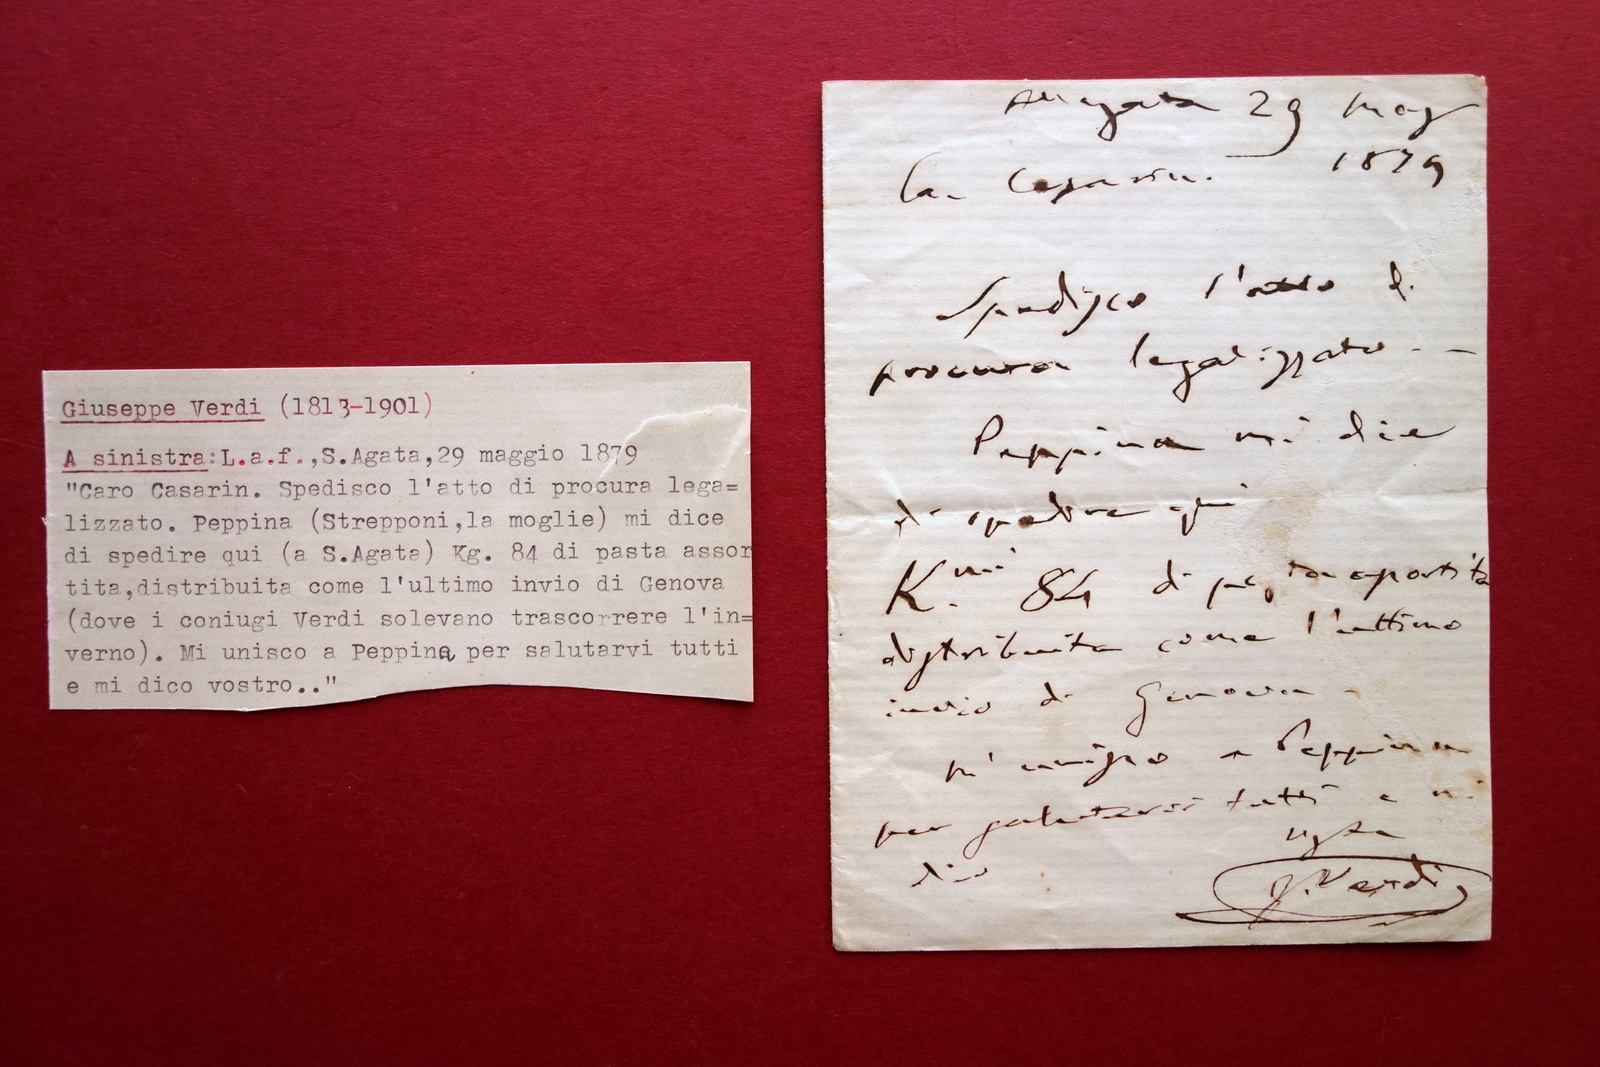 Giuseppe Verdi (1813-1901)
A sinistra:L.a.f.,S.Agata,29 maggio 1879
"Caro Casarin. Spedisco l'atto di procura lega=
lizzato. Peppina (Strepponi,la moglie) mi dice
di spedire qui (a S.Agata) Kg. 84 di pasta assor
tita,distribuita come l'ultimo invio di Genova
(dove i coniugi Verdi solevano trascorrere l'in=
verno). Mi unisco a Peppina per salutarvi tutti
e mi dico vostro.."
29 Mag
1879
Ca. Casarin.
Spedisco l'atto di
procura legalizzato. —
Peppina mi dice
di spedire qui
K. 84 di pasta assortita
distribuita come l'ultimo
invio di Genova
M'unisco a Peppina
per salutarvi tutti e mi
dico
G. Verdi